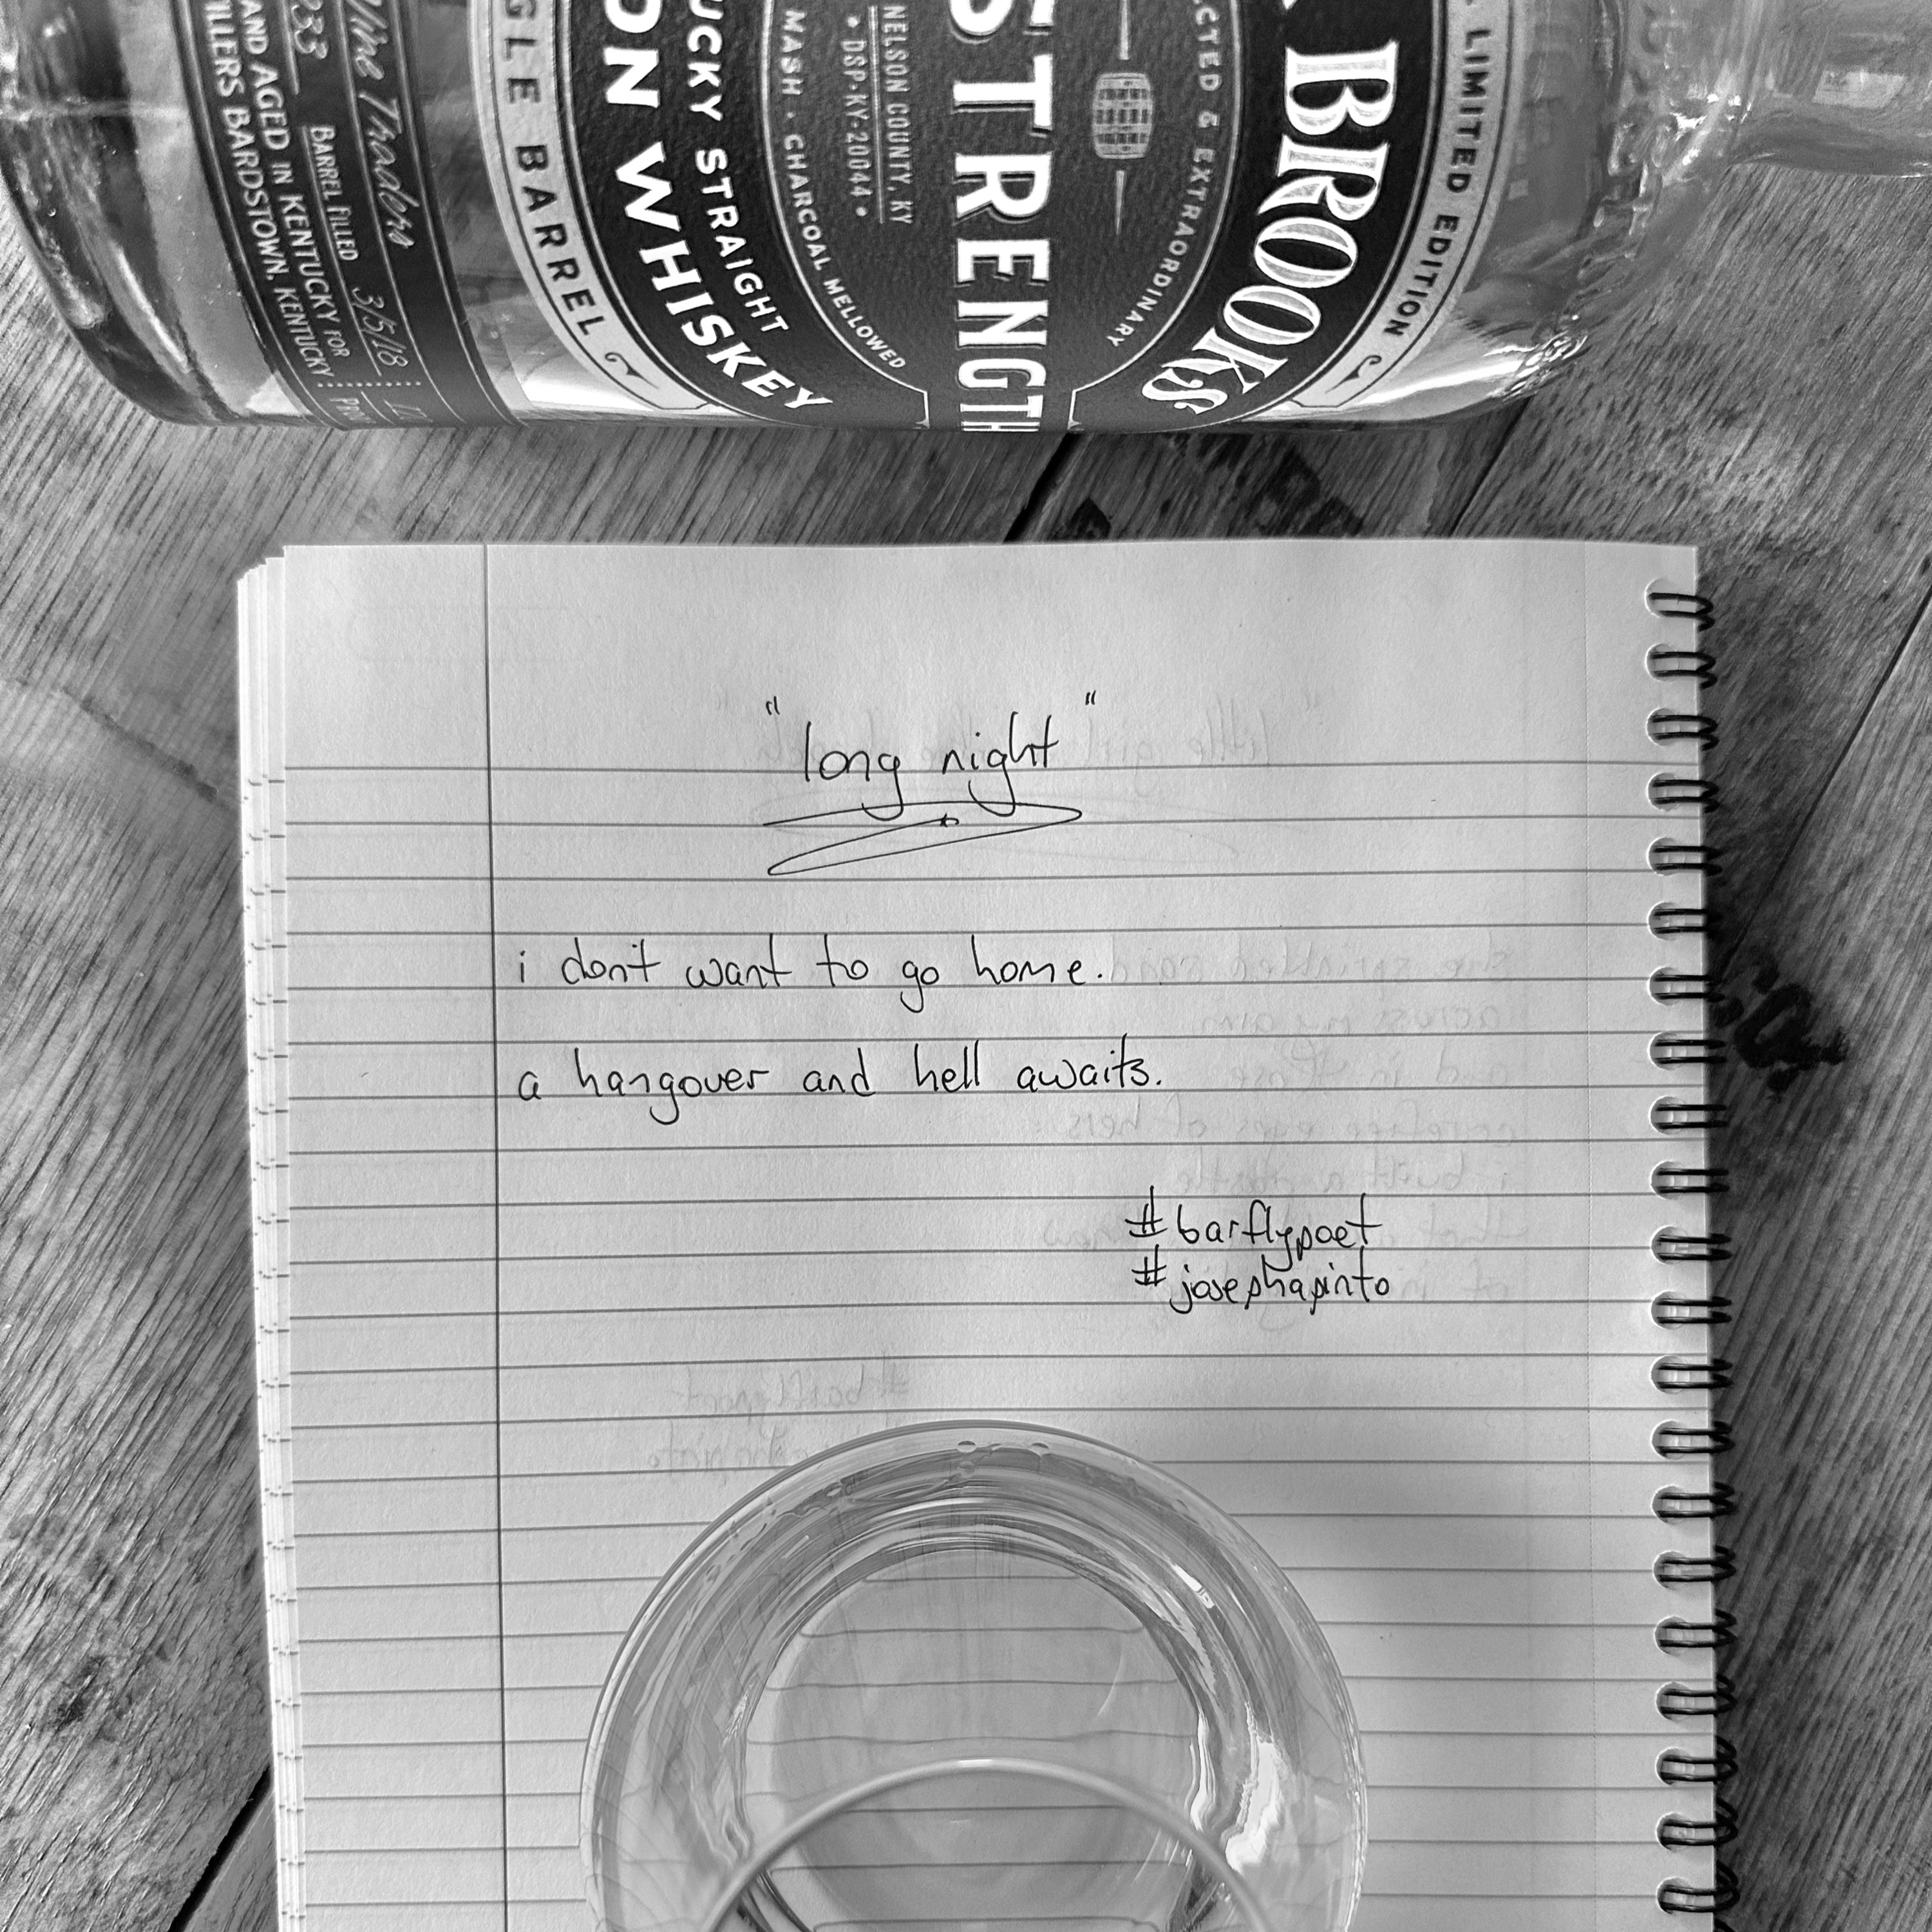 Wine Traders
233
BARREL FILLED
3/5/18
AND AGED IN KENTUCKY FOR
BARDSTOWN, KENTUCKY
BARREL
WHISKEY
STRAIGHT
MASH • CHARCOAL MELLOWED
NELSON COUNTY, KY
• DSP-KY-20044 •
STRENGTH
& EXTRAORDINARY
BROOKS
LIMITED EDITION
"long night"
i don't want to go home.
a hangover and hell awaits.
#barflypoet
#josephapinto